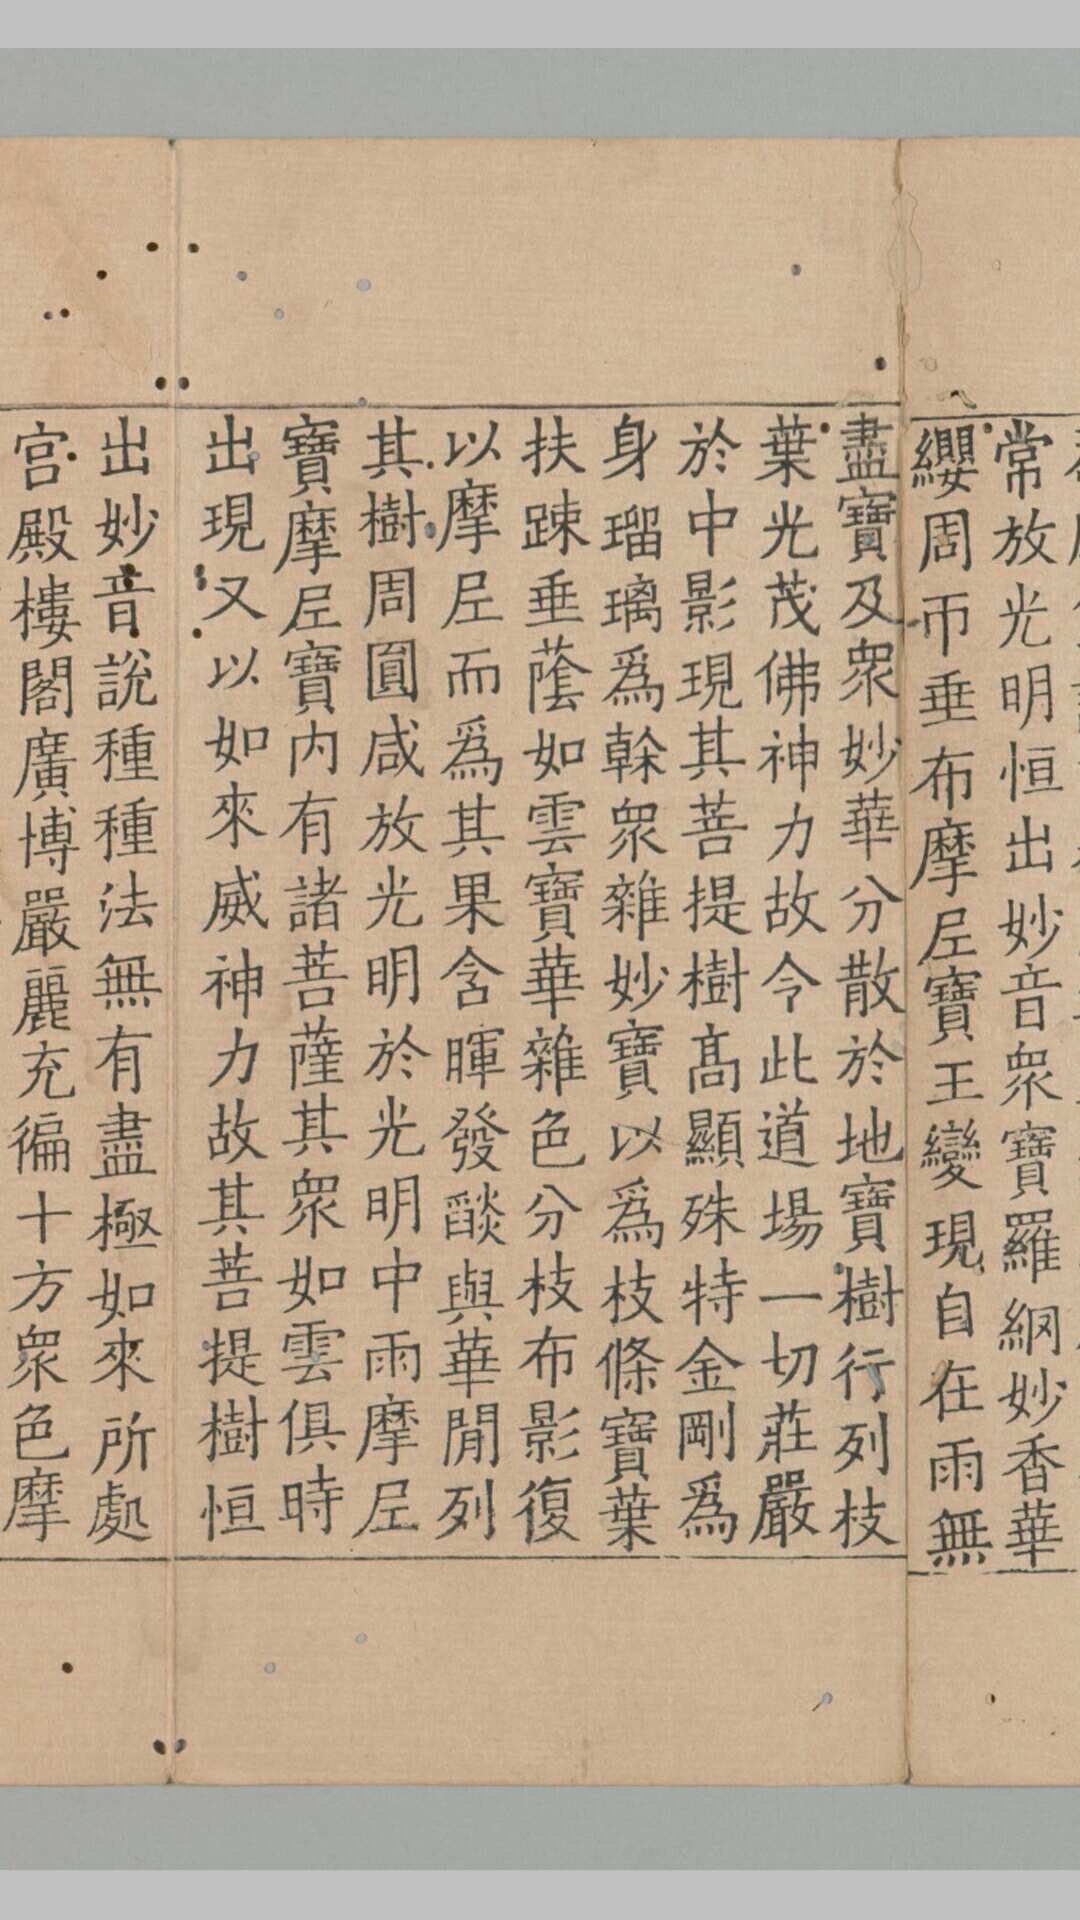 常放光明恒出妙音眾寶羅網妙香華
纓周帀垂布摩尼寶王變現自在雨無
盡寶及眾妙華分散於地寶樹行列枝
葉光茂佛神力故令此道場一切莊嚴
於中影現其菩提樹髙顯殊特金剛爲
身瑠璃爲榦眾雜妙寶以爲枝條寶葉
扶踈垂蔭如雲寶華雜色分枝布影復
以摩尼而爲其果含暉發燄與華閒列
其樹周圓咸放光明於光明中雨摩尼
寶摩尼寶内有諸菩薩其眾如雲俱時
出現又以如來威神力故其菩提樹恒
出妙音說種種法無有盡極如來所處
宮殿樓閣廣博嚴麗充徧十方眾色摩